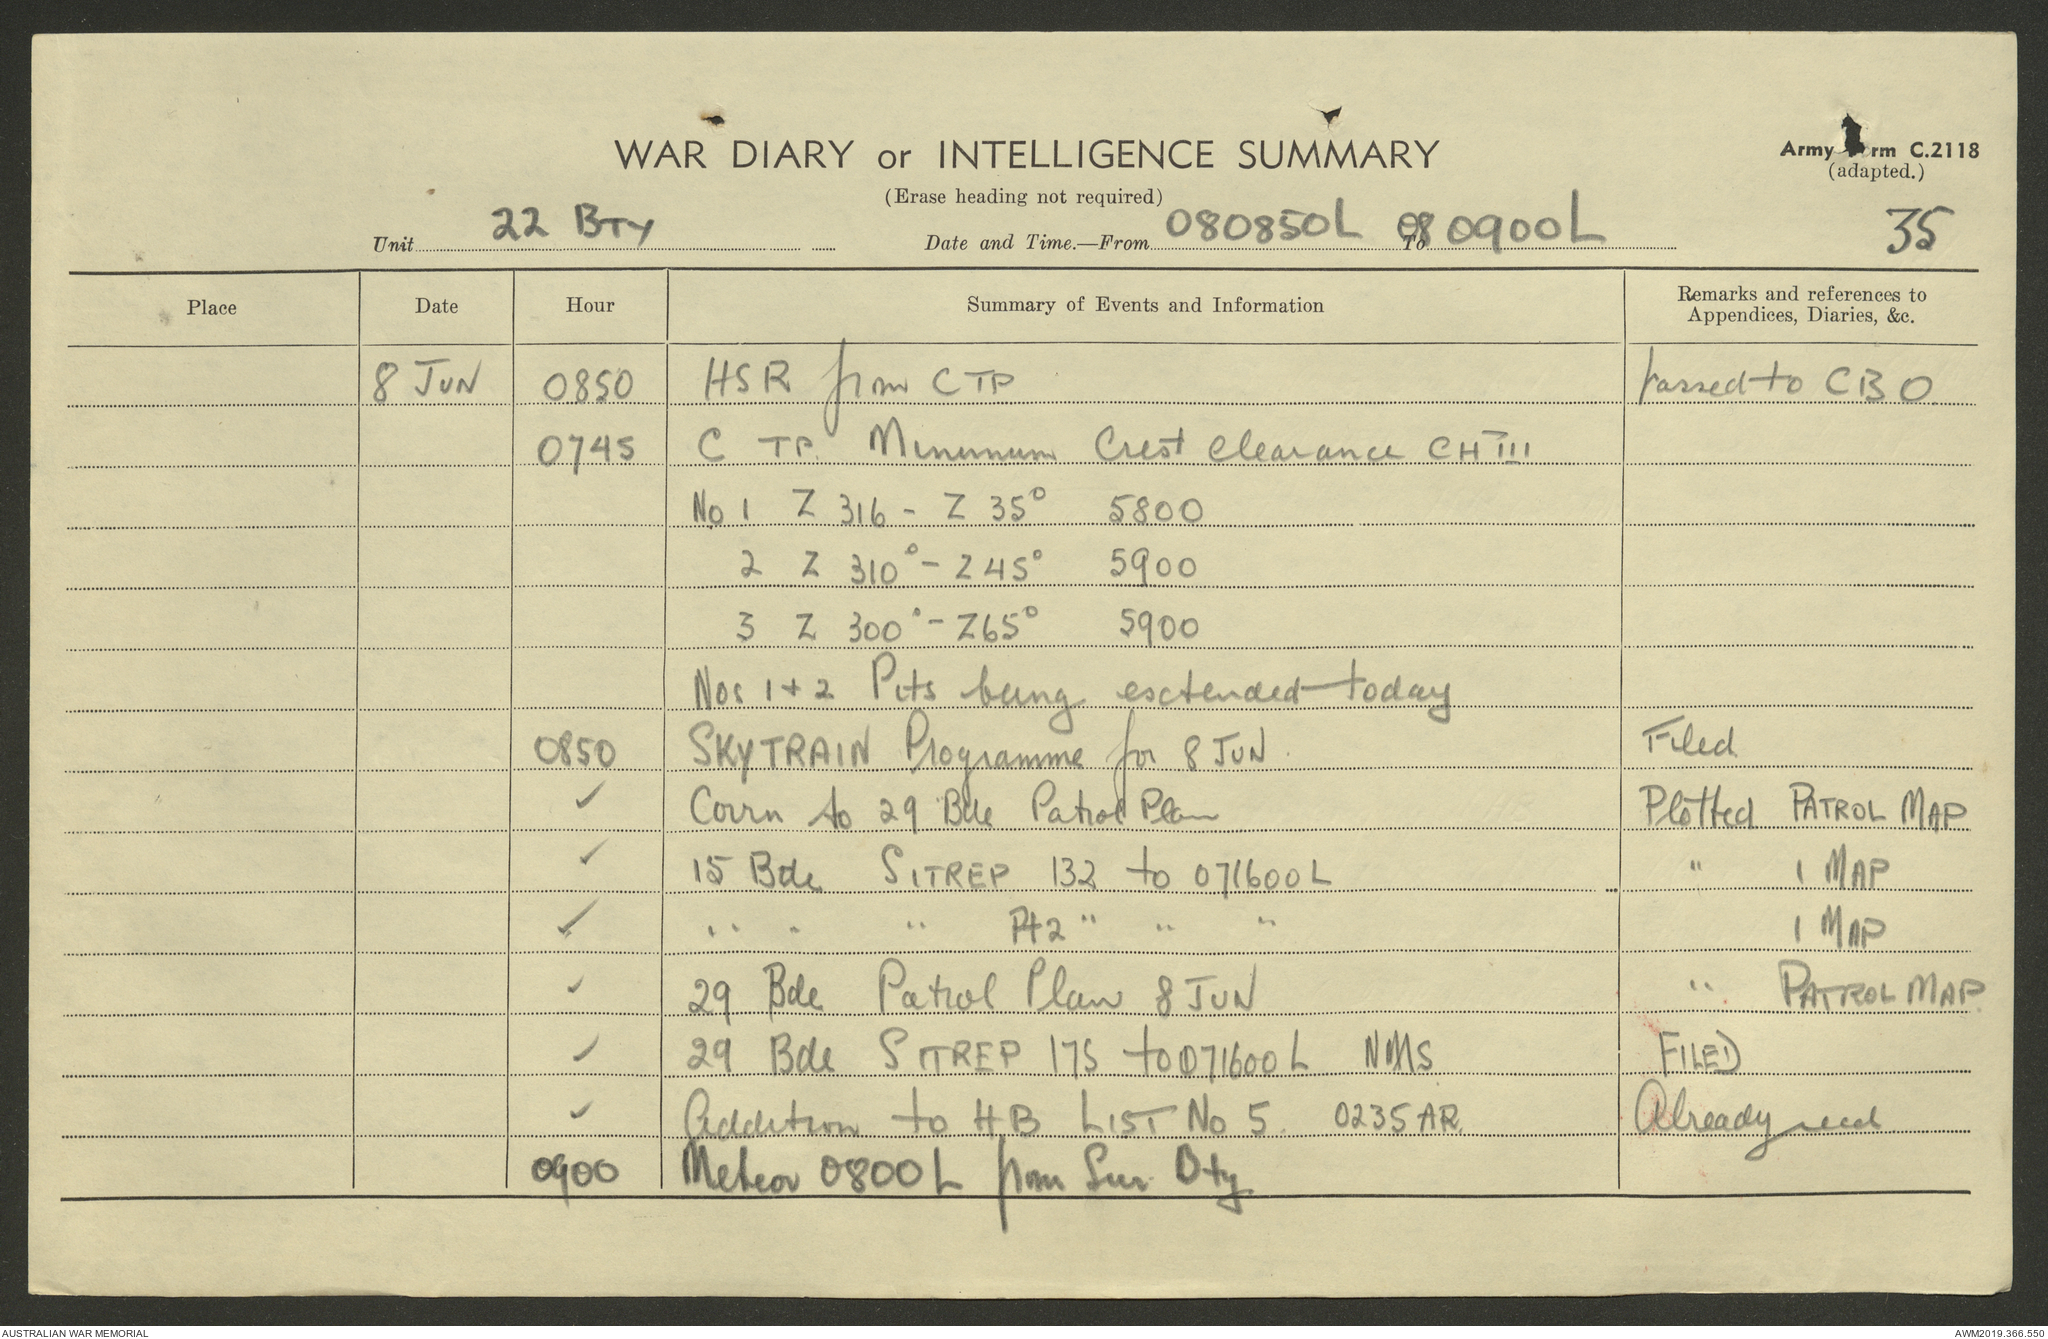 WAR DIARY or INTELLIGENCE SUMMARY
Army Form C.2118
(adapted.)
(Erase heading not required)
Unit 22 BTY Date and Time.—From 080850L To 080900L 35
Place Date Hour Summary of Events and Information Remarks and references to Appendices, Diaries, &c.
8 JUN 0850 HSR from C TP passed to CBO
0745 C TP. Minimum Crest Clearance CH III
No 1 Z 316 - Z 35° 5800
2 Z 310° - Z 45° 5900
3 Z 300° - Z 65° 5900
Nos 1 + 2 Pits being extended today
0850 SKYTRAIN Programme for 8 JUN. Filed
✓ Corrn to 29 Bde Patrol Plan Plotted PATROL MAP
✓ 15 Bde SITREP 132 to 071600L " 1 MAP
✓ " " " Pt 2 " " " 1 MAP
✓ 29 Bde Patrol Plan 8 JUN " PATROL MAP
✓ 29 Bde SITREP 175 to 071600L NMS FILED
✓ Addition to HB LIST No 5. 0235 AR. Already recd
0900 Meteor 0800L from Svy Bty
AUSTRALIAN WAR MEMORIAL
AWM2019.366.550